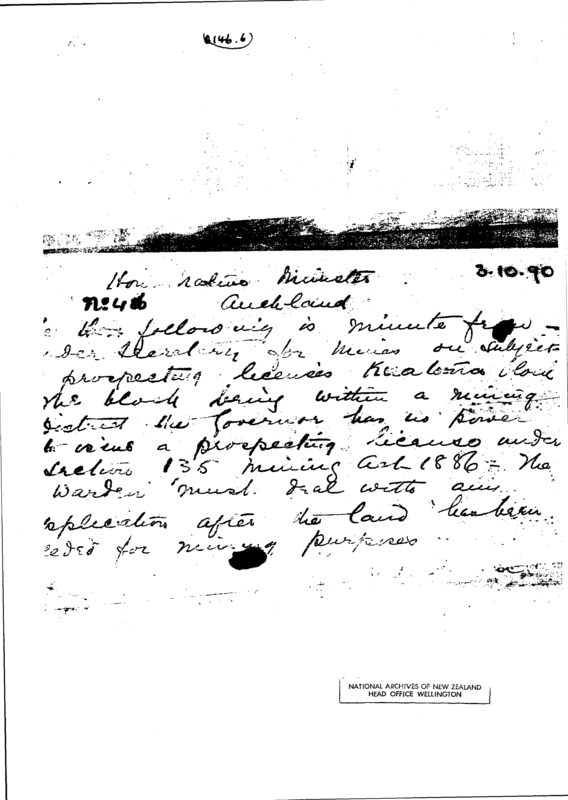 146.6
Hon. Native Minister 3.10.90
No 46 Auckland
following is minute from
for Mines on subject
prospecting licenses
the block being within a mining
District the Governor has no power
to issue a prospecting license under
Section 135 Mining Act 1886 = The
Warden must deal with any
application after the land has been
ceded for mining purposes
NATIONAL ARCHIVES OF NEW ZEALAND
HEAD OFFICE WELLINGTON